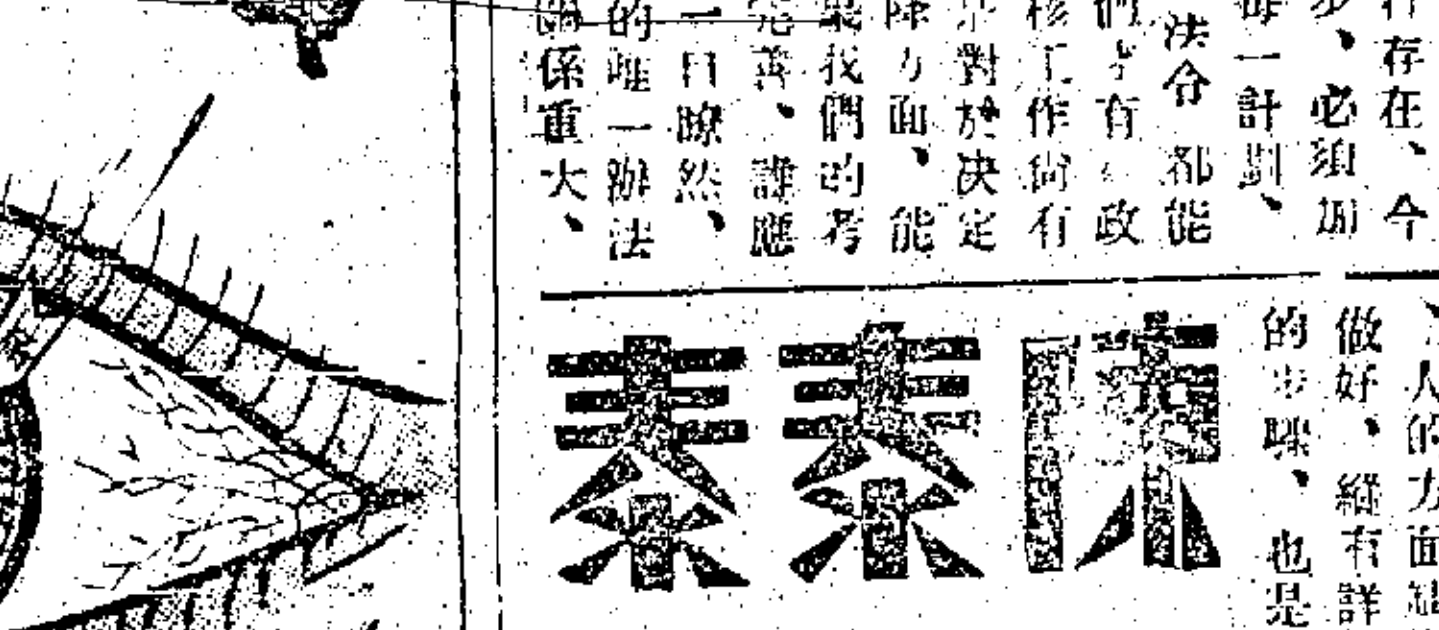 存在、今
、必須加
每一計劃、
法令都能
們才有政
核工作尚有
對於決定
方面、能
我們的考
完善、誰應
一目瞭然、
的唯一辦法
關係重大、
人的方面
做好、縱有詳
的步驟、也是
陳泰泰